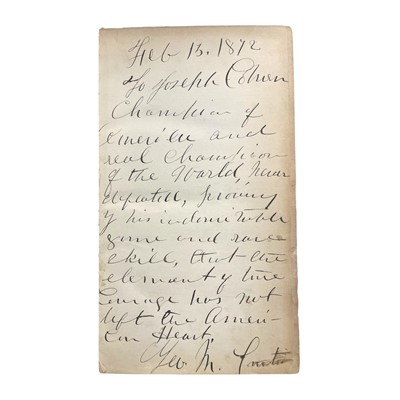 Feb 13. 1872
To Joseph Coburn
Champion of
America and
real Champion
of the World, never
defeated, proving
by his indomitable
game and rare
skill, that the
element of true
Courage has not
left the Ameri-
can Heart.
Geo M.